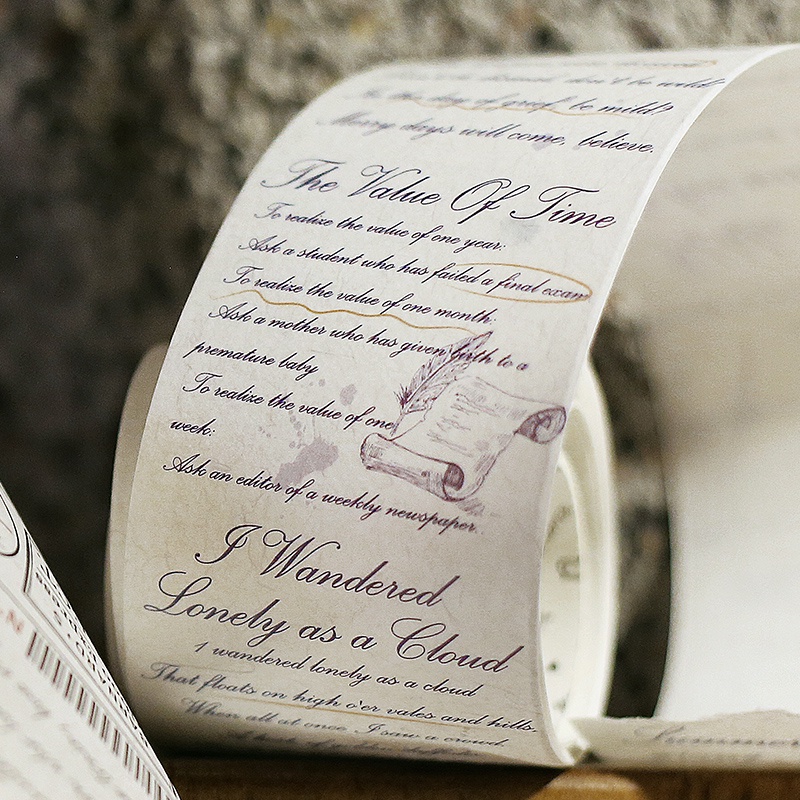 don't be wild
In the day of grief, be mild?
Merry days will come, believe.
The Value Of Time
To realize the value of one year:
Ask a student who has failed a final exam
To realize the value of one month:
Ask a mother who has given birth to a
premature baby
To realize the value of one
week:
Ask an editor of a weekly newspaper.
I Wandered
Lonely as a Cloud
I wandered lonely as a cloud
That floats on high o'er vales and hills.
When all at once I saw a crowd
Summer